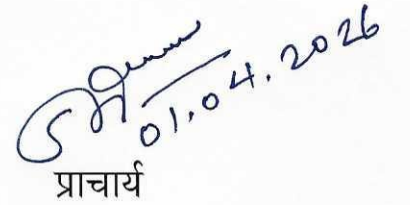 01.04.2026
प्राचार्य